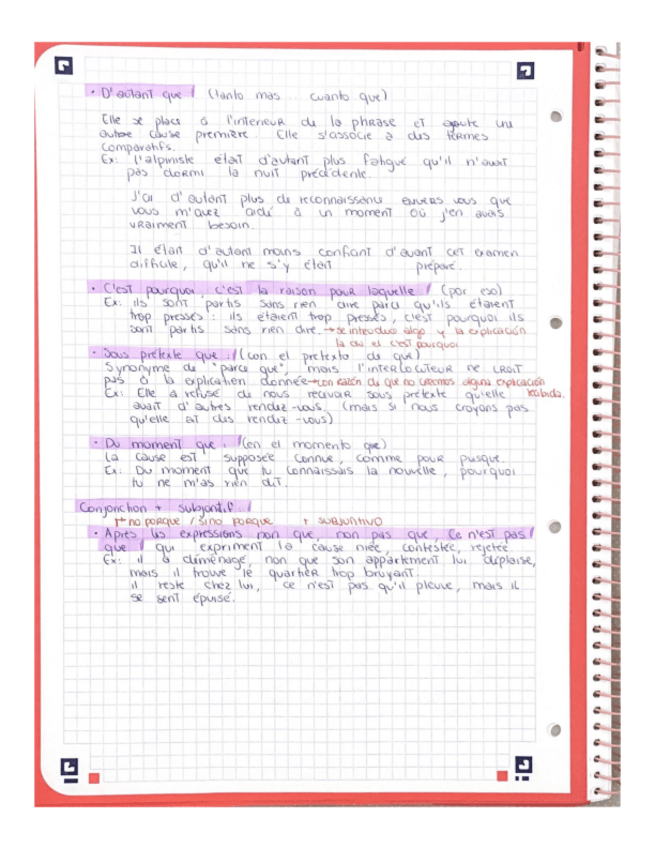 • D'autant que / (tanto mas... cuanto que)
Elle se place à l'interieur de la phrase et ajoute une
autre cause première. Elle s'associe à des termes
comparatifs.
Ex: l'alpiniste était d'autant plus fatigué qu'il n'avait
pas dormi la nuit précédente.
J'ai d'autant plus de reconnaissance envers vous que
vous m'avez aidé à un moment où j'en avais
vraiment besoin.
Il était d'autant moins confiant d'avant cet examen
difficile, qu'il ne s'y était préparé.
• C'est pourquoi, c'est la raison pour laquelle / (por eso)
Ex: ils sont partis sans rien dire parce qu'ils étaient
trop pressés : ils étaient trop pressés, c'est pourquoi ils
sont partis sans rien dire. → se introduce algo y la explicación
la da el c'est pourquoi
• Sous prétexte que : / (con el pretexto de que)
Synonyme de "parce que", mais l'interlocuteur ne croit
pas à la explication donnée → con razón de que no creemos alguna explicación
recibida.
Ex: Elle a refusé de nous recevoir sous prétexte qu'elle
avait d'autres rendez-vous. (mais si nous croyons pas
qu'elle ait des rendez-vous)
• Du moment que : / (en el momento que)
La cause est supposée connue, comme pour puisque.
Ex: Du moment que tu connaissais la nouvelle, pourquoi
tu ne m'as rien dit.
Conjonction + subjontif /
no porque / sino porque + SUBJUNTIVO
• Après les expressions non que, non pas que, ce n'est pas /
que / qui expriment la cause niée, contestée, rejetée
Ex: il a déménagé, non que son appartement lui déplaise,
mais il trouve le quartier trop bruyant.
il reste chez lui, ce n'est pas qu'il pleuve, mais il
se sent épuisé.